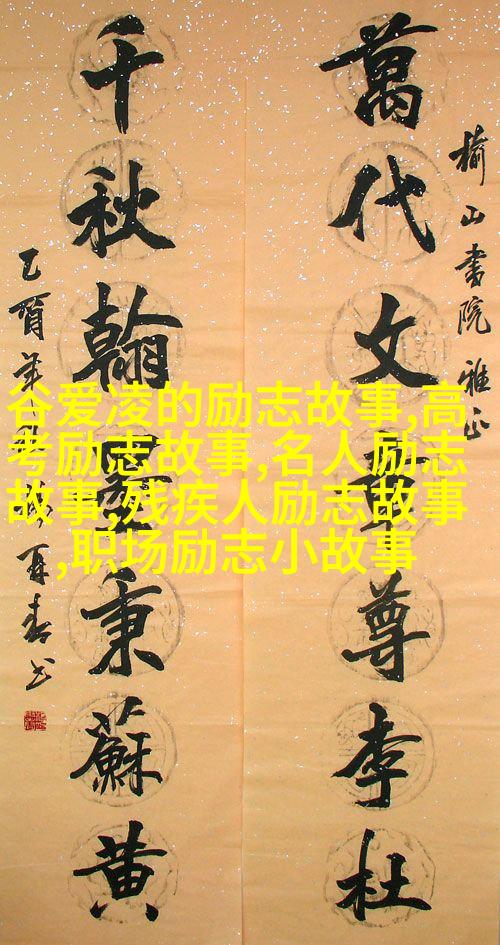 榆山書院 雅正
萬代文章尊李杜
千秋翰墨秉蘇黄
乙酉年 再春书
谷爱凌的励志故事,高
考励志故事,名人励志
故事,残疾人励志故事
,职场励志小故事